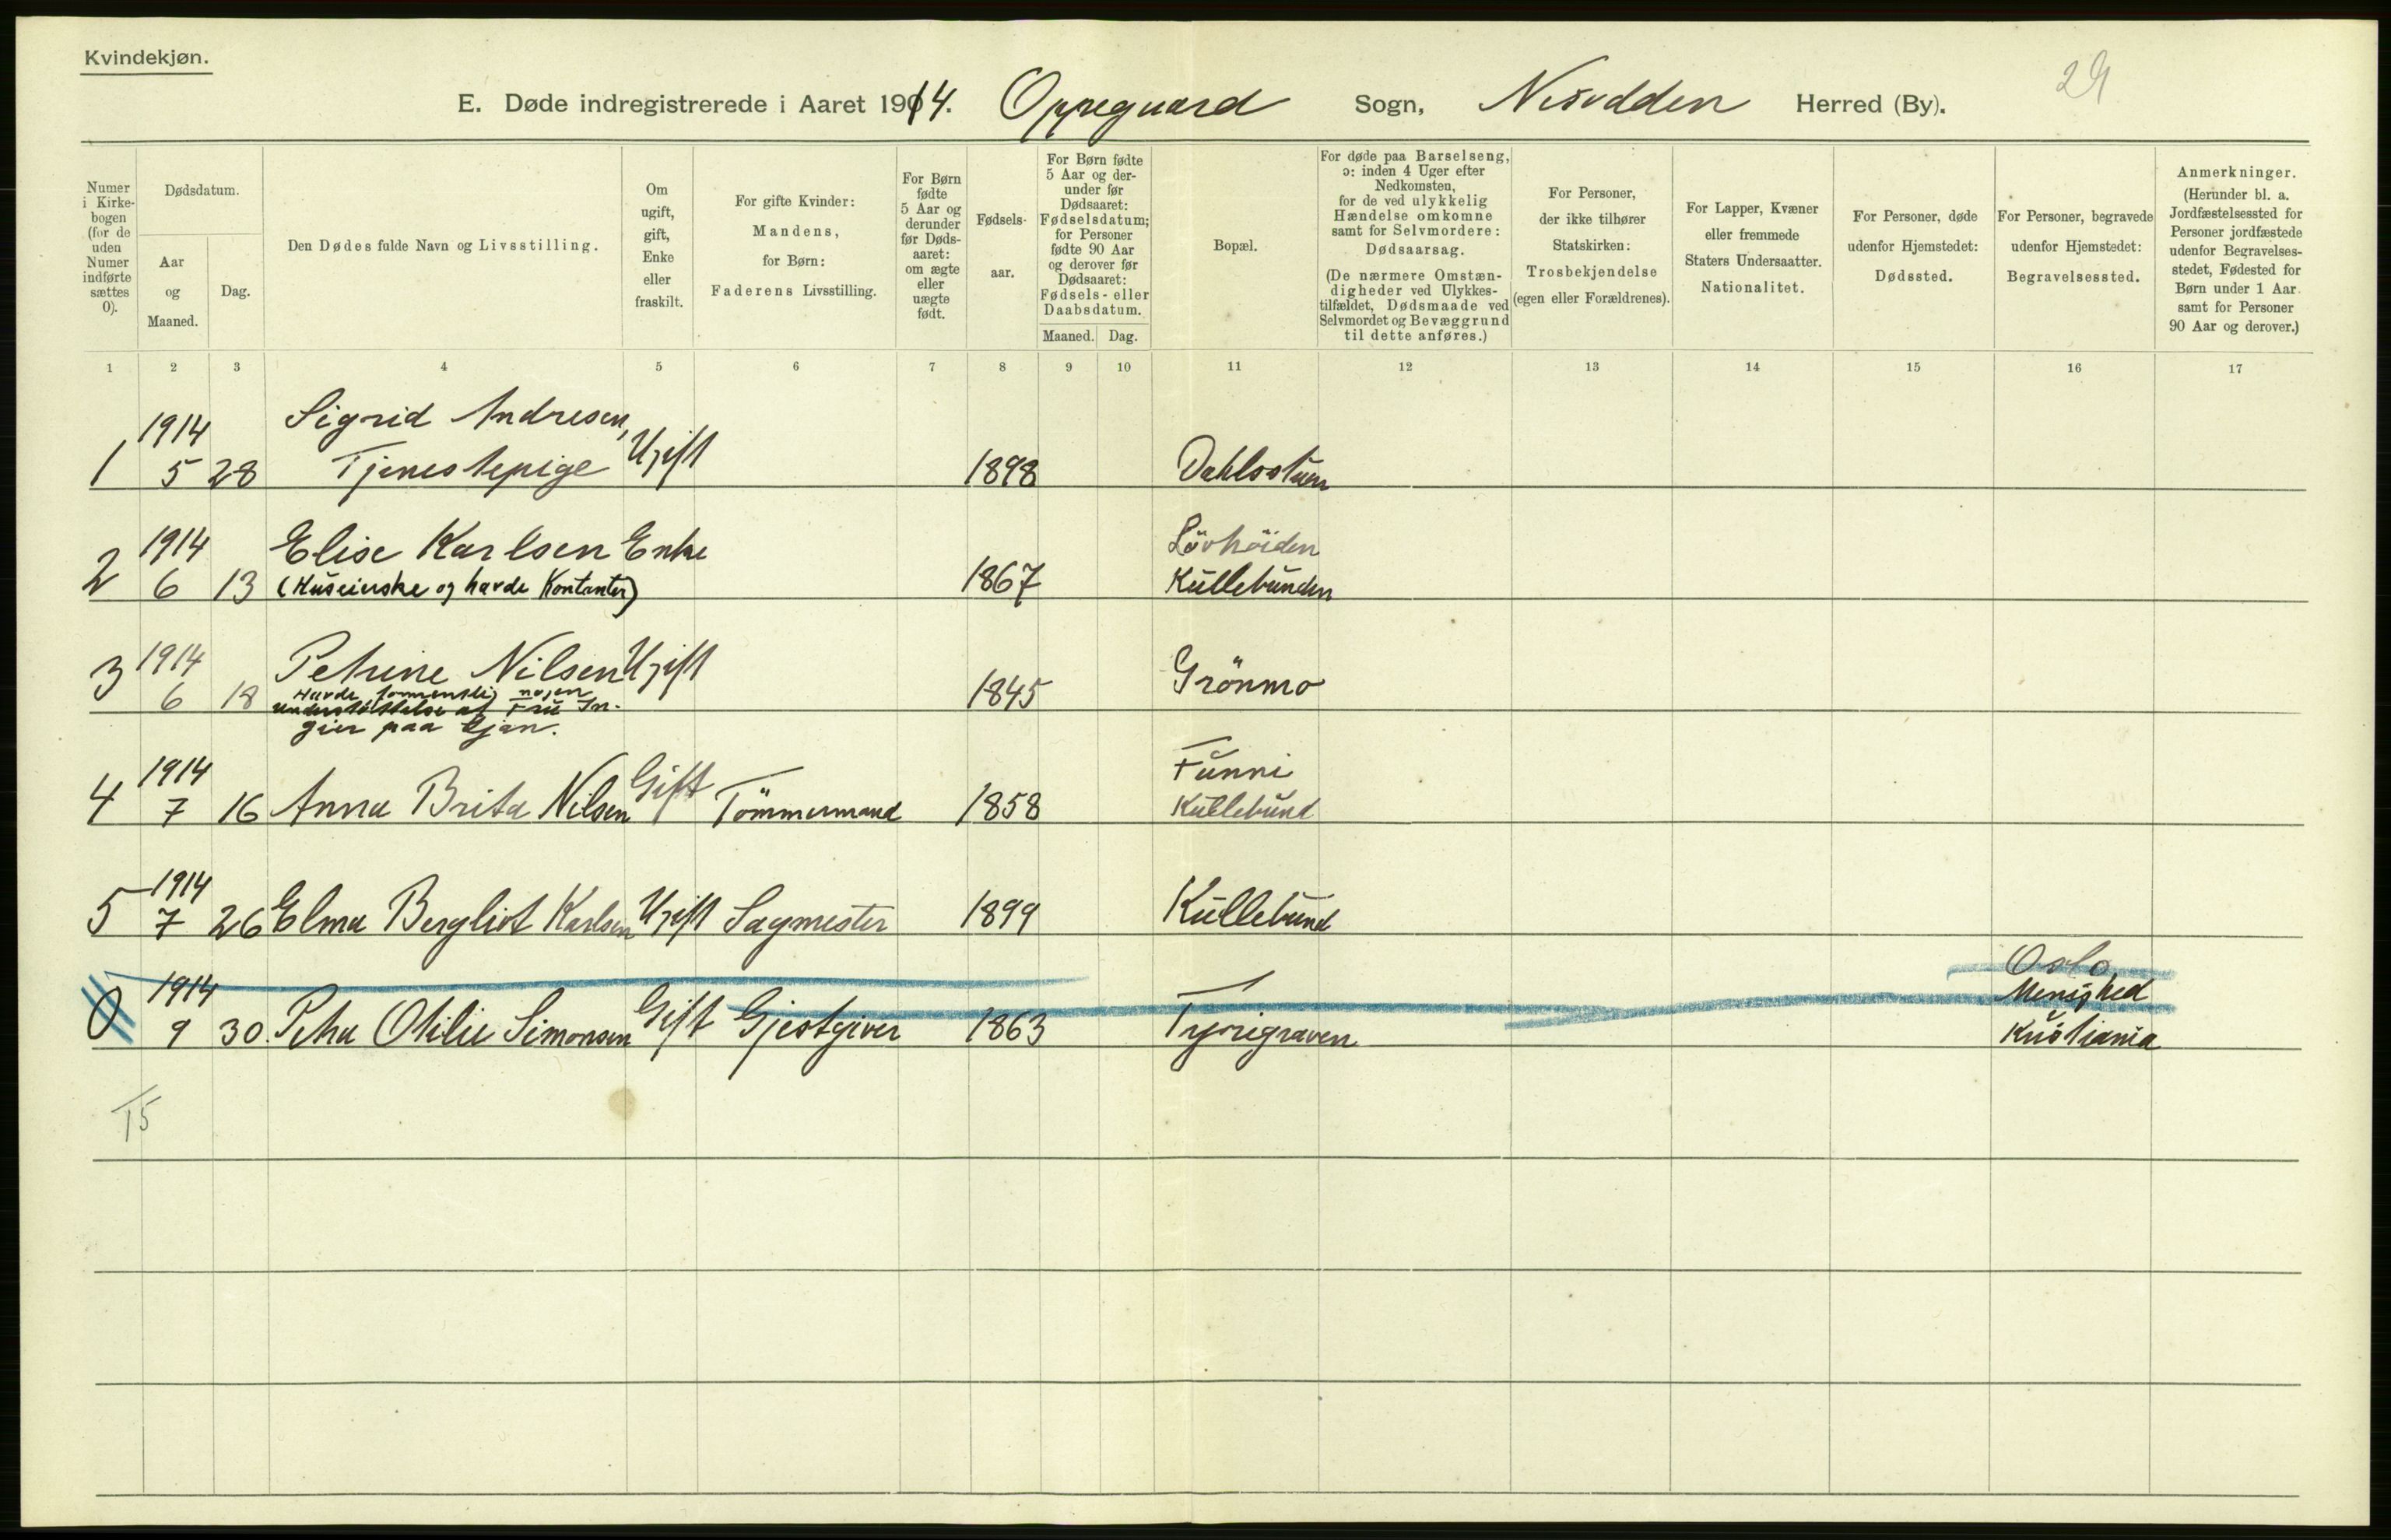 Kvindekjøn.
E. Døde indregistrerede i Aaret 1914. Oppegaard Sogn, Nesodden Herred (By).
29
Numer i Kirke-bogen (for de uden Numer indførte sættes 0).
Dødsdatum.
Aar og Maaned.
Dag.
Den Dødes fulde Navn og Livsstilling.
Om ugift, gift, Enke eller fraskilt.
For gifte Kvinder: Mandens, for Børn: Faderens Livsstilling.
For Børn fødte 5 Aar og derunder før Døds-aaret: om ægte eller uægte født.
Fødsels-aar.
For Børn fødte 5 Aar og der-under før Dødsaaret: Fødselsdatum; for Personer fødte 90 Aar og derover før Dødsaaret: Fødsels- eller Daabsdatum.
Maaned. Dag.
Bopæl.
For døde paa Barselseng, ɔ: inden 4 Uger efter Nedkomsten, for de ved ulykkelig Hændelse omkomne samt for Selvmordere: Dødsaarsag.
(De nærmere Omstæn-digheder ved Ulykkes-tilfældet, Dødsmaade ved Selvmordet og Bevæggrund til dette anføres.)
For Personer, der ikke tilhører Statskirken: Trosbekjendelse (egen eller Forældrenes).
For Lapper, Kvæner eller fremmede Staters Undersaatter. Nationalitet.
For Personer, døde udenfor Hjemstedet: Dødssted.
For Personer, begravede udenfor Hjemstedet: Begravelsessted.
Anmerkninger.
(Herunder bl. a. Jordfæstelsessted for Personer jordfæstede udenfor Begravelses-stedet, Fødested for Børn under 1 Aar samt for Personer 90 Aar og derover.)
1 2 3 4 5 6 7 8 9 10 11 12 13 14 15 16 17
1914 Sigrid Andresen,
1 5 28 Tjenestepige Ugift 1898 Dahlsstuen
1914 Elise Karlsen Enke Lövhöiden
2 6 13 (Huseierske og havde Kontanter) 1867 Kullebunden
3 1914 Petrine Nilsen Ugift Grönmo
6 18 Havde nogen 1845
understöttelse af Frü In-
gier paa Ljan.
1914 Gift Funni
4 7 16 Anna Brita Nilsen Tömmermand 1858 Küllebund
1914
5 7 26 Elma Bergliot Karlsen Ugift Sagmester 1899 Küllebund
Oslo
1914 Menighed
0 9 30. Petra Otilie Simonsen Gift Gjestgiver 1863 Tyrigraven Kristiania
T5